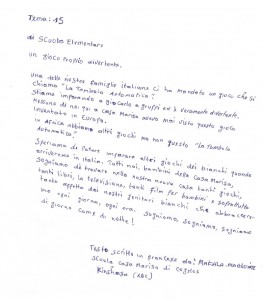 Tema: 15
di Scuola Elementare
un gioco proprio divertente.
Una delle nostre famiglie italiane ci ha mandato un gioco che si
chiama "La Tombola Automatica".
Stiamo imparando a giocarlo a gruppi ed è veramente divertente.
Nessuno di noi qui a casa Marisa aveva mai visto questo gioco
inventato in Europa.
in Africa abbiamo altri giochi ma non questo "la Tombola
Automatica".
Speriamo di Potere imparare altri giochi dei bianchi quando
arriveremo in italia. Tutti noi bambini della Casa Marisa,
sogniamo di trovare nella nostra nuova casa tanti giochi,
tanti libri, la televisione, tanti film per bambini e soprattutto
tanto affetto dai nostri genitori bianchi che abbracceremo
ogni giorno, ogni ora. Sogniamo, sogniamo, sogniamo
di giorno come di notte!
Testo scritto in francese da:
Scuola Casa Marisa di
Kinshasa (RDC)